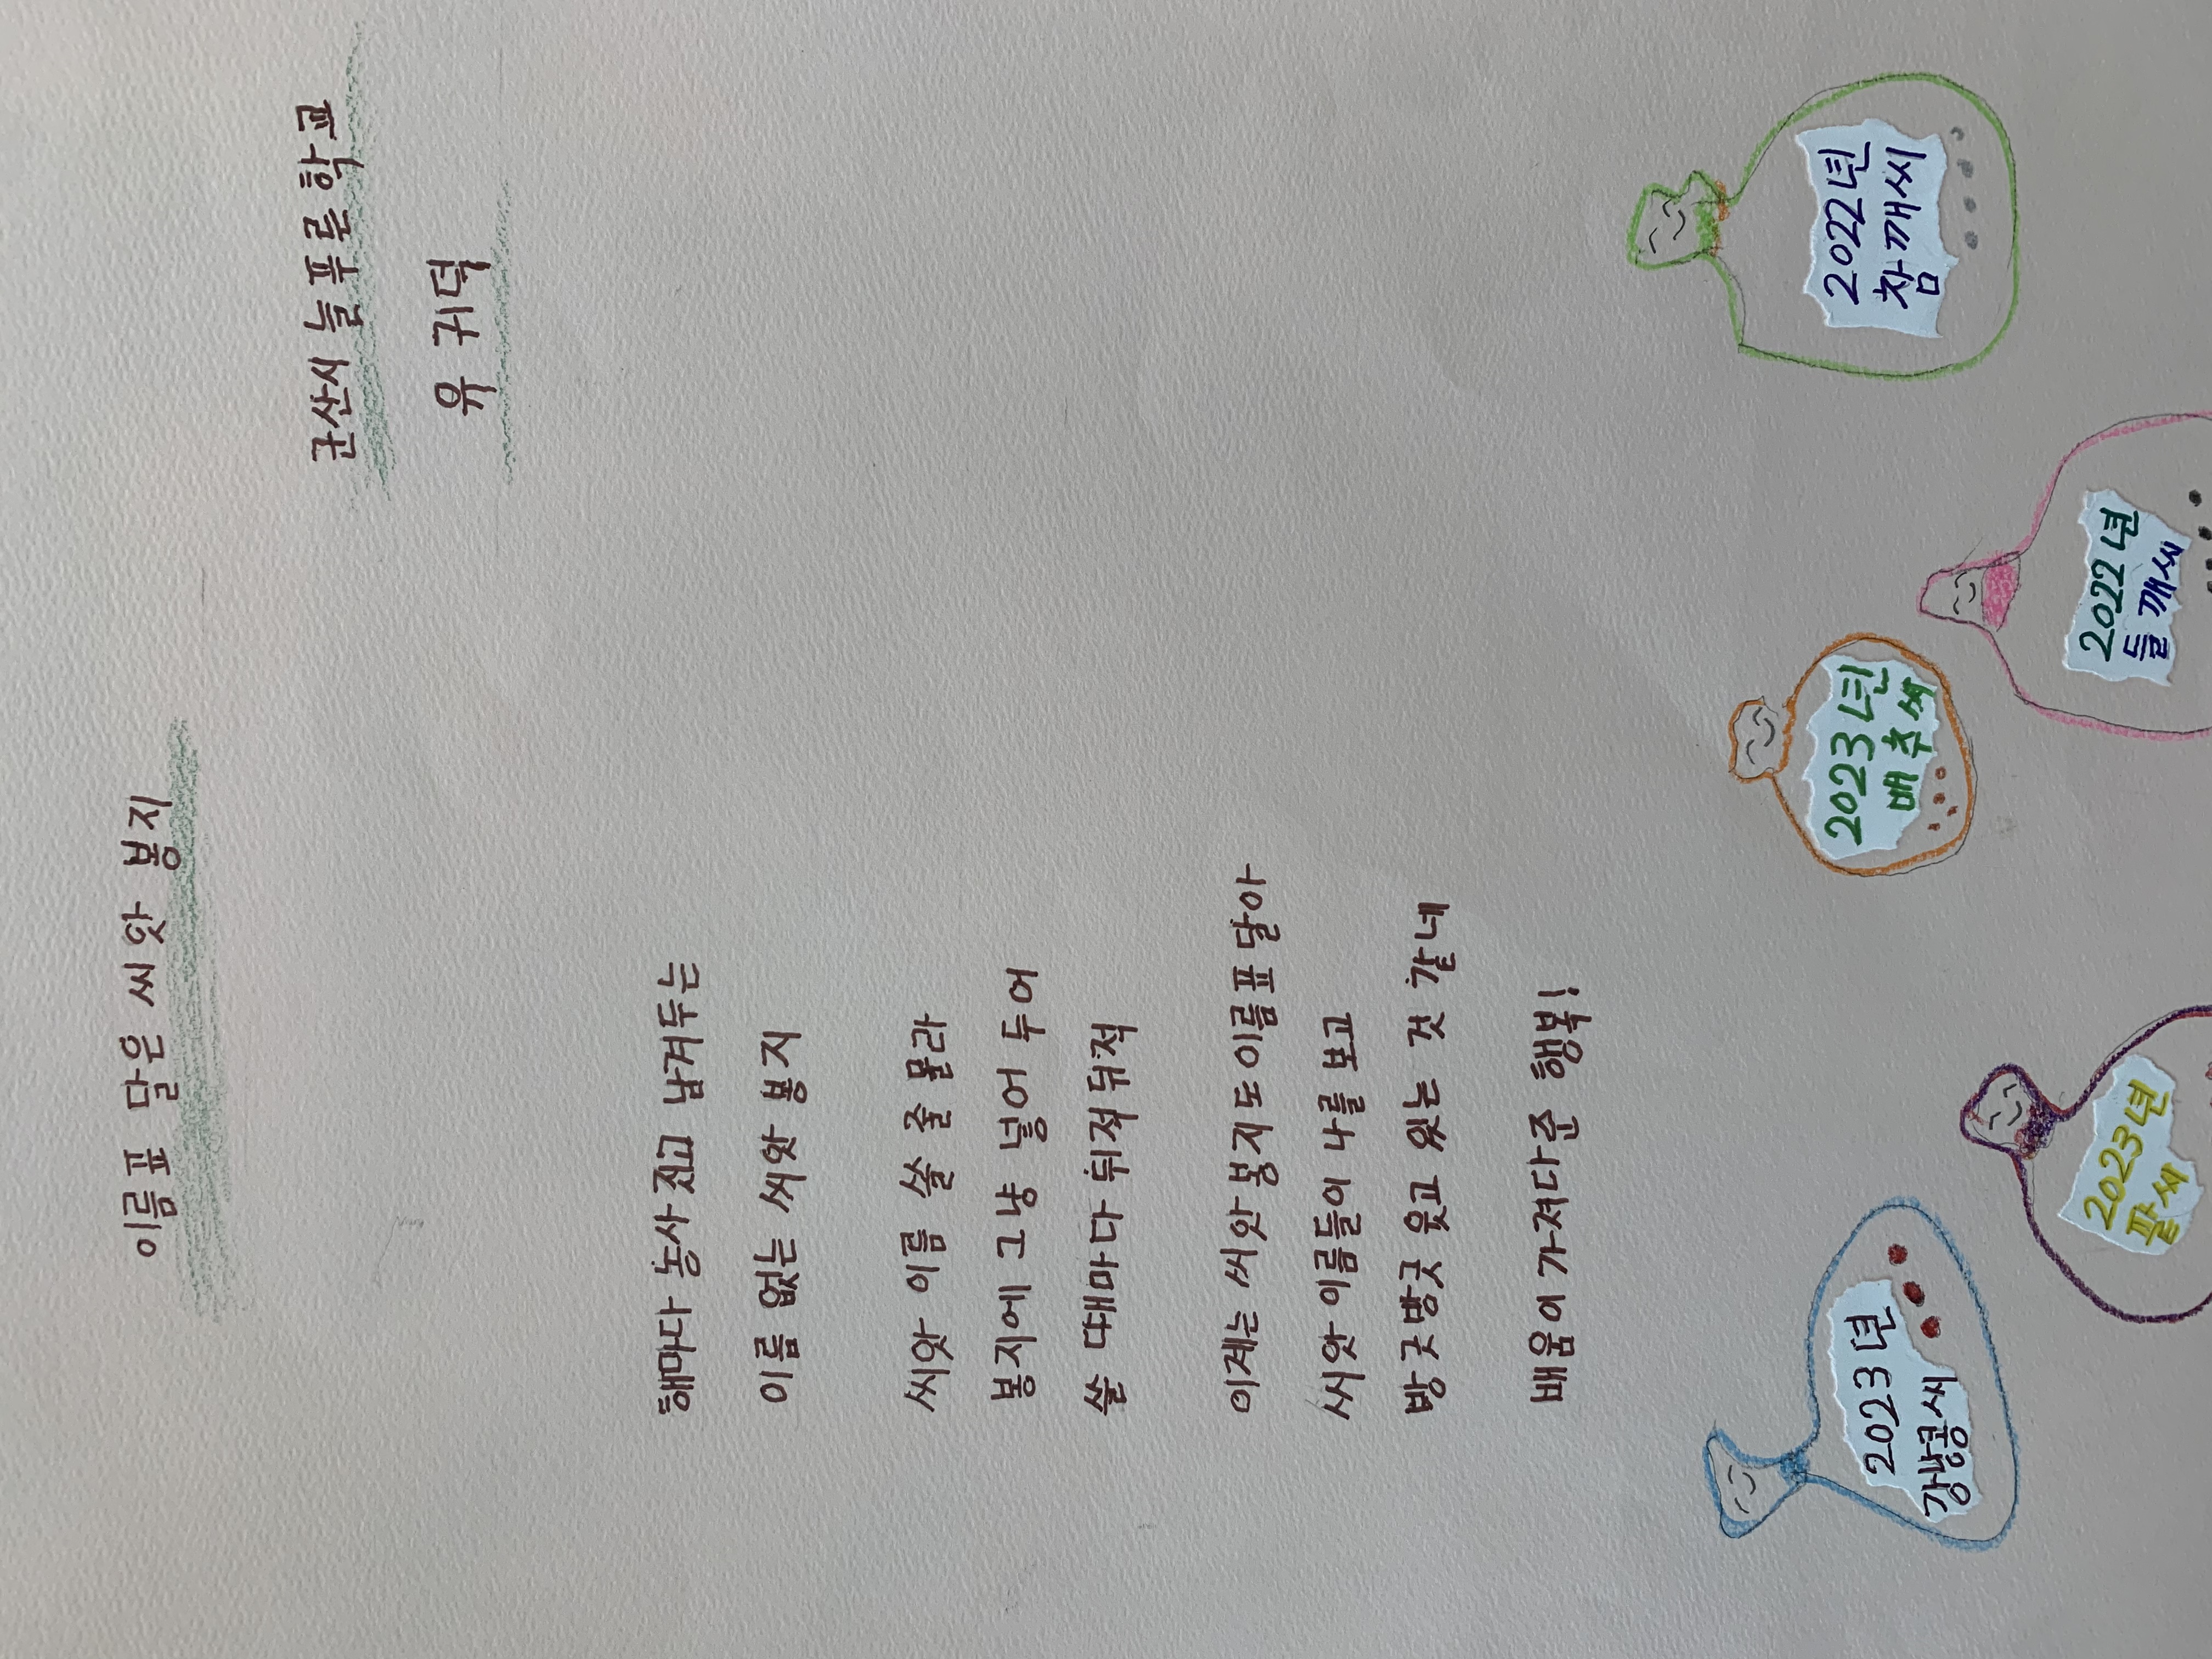 이름표 달은 씨앗 봉지
군산시 늘푸른학교
유 귀덕
해마다 농사 짓고 남겨두는
이름 없는 씨앗 봉지
씨앗 이름 쓸 줄 몰라
봉지에 그냥 넣어 두어
쓸 때마다 뒤적 뒤적
이제는 씨앗 봉지도 이름표 달아
씨앗 이름들이 나를 보고
방긋방긋 웃고 있는 것 같네
배움이 가져다준 행복!
2023년
강낭콩씨
2023년
팥씨
2023년
배추씨
2022년
들깨씨
2022년
참깨씨